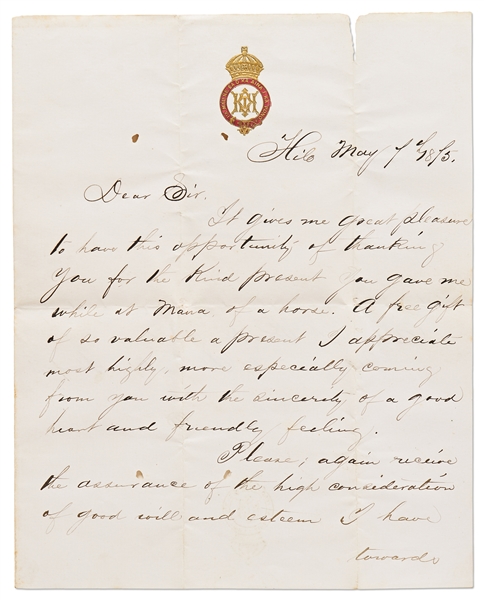 Hilo May 7th 1875.
Dear Sir.
It gives me great pleasure
to have this opportunity of thanking
You for the Kind present you gave me
while at Mana of a horse. A free gift
of so valuable a present I appreciate
most highly, more especially coming
from you with the sincerety of a good
heart and friendly feeling.
Please; again receive
the assurance of the high consideration
of good will and esteem I have
towards